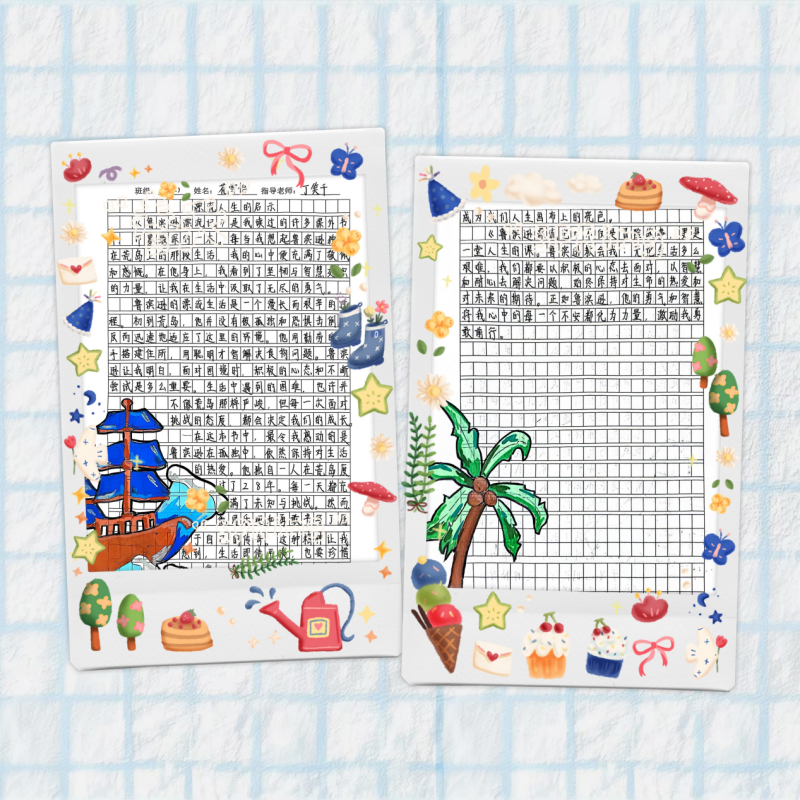 班级: 姓名: 指导老师: 丁爱千
漂流人生的启示
《鲁滨逊漂流记》是我读过的许多课外书
每当我想起鲁滨逊独
在荒岛上的那段生活，我的心中便充满了敬佩
和感慨。在他身上，我看到了坚韧与智慧
的力量，让我在生活中汲取了无尽的勇气。
鲁滨逊的漂流生活是一个漫长而艰辛的
程。初到荒岛，他并没有被孤独和恐惧击倒
反而迅速地适应了这里的环境。他用勤劳的
手搭建住所，用聪明才智解决食物问题。鲁滨
逊让我明白，面对困境时，积极的心态和不断
尝试是多么重要。生活中遇到的困难，也许并
不像荒岛那样严峻，但每一次面对
挑战的态度，都会决定我们的成长。
在这本书中，最令我感动的是
鲁滨逊在孤独中，依然保持对生活
的热爱。他独自一人在荒岛度
过了28年。每一天都充
满了未知与挑战。然而
于自己的 这种精神让我
感到，生活即使 也要珍惜
成为我们人生画布上的花色。
《鲁滨逊漂流记》不仅是 更是
一堂人生的课。鲁滨逊教会我：无论生活多么
艰难，我们都要以积极的心态去面对，以智慧
和耐心去解决问题，始终保持对生命的热爱和
对未来的期待。正如鲁滨逊，他的勇气和智慧
将我心中的每一个不安都化为力量，激励我勇
敢前行。